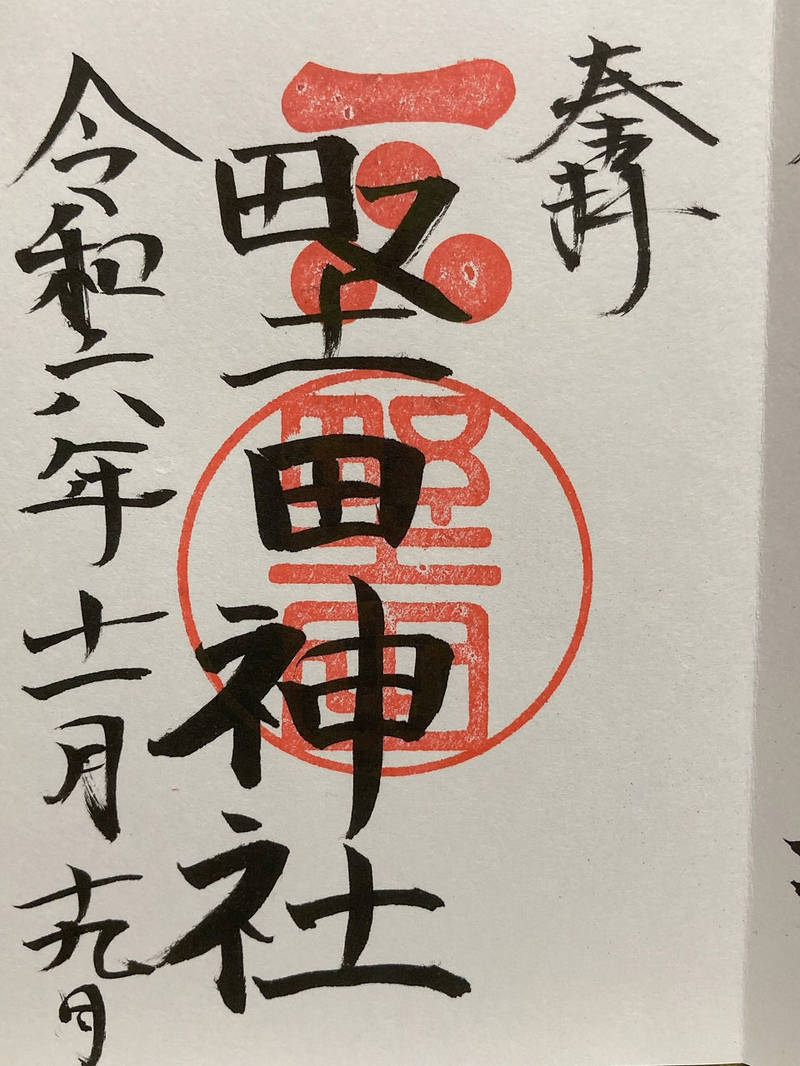 奉拝
堅田神社
堅田
令和六年十一月十九日